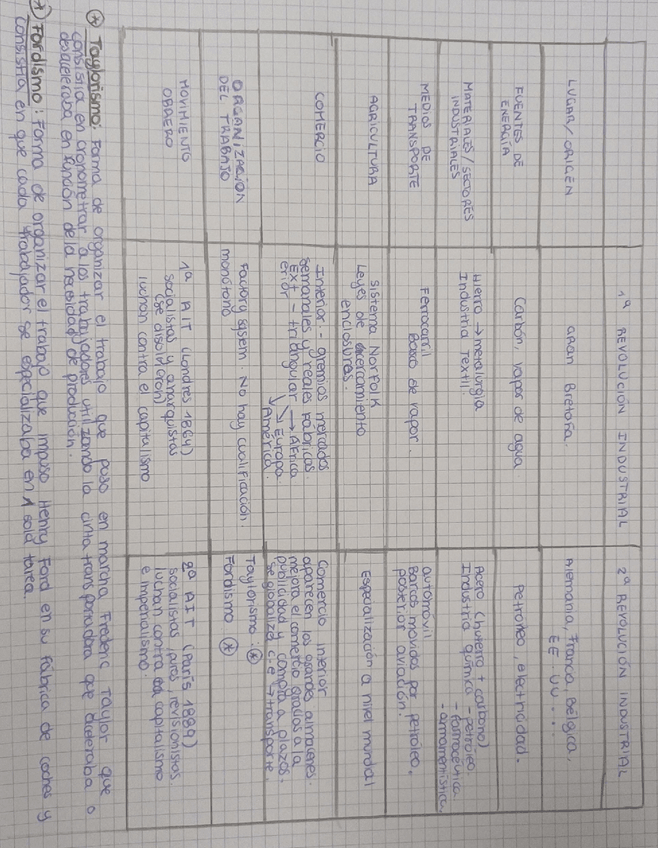 1ª REVOLUCIÓN INDUSTRIAL
2ª REVOLUCIÓN INDUSTRIAL
LUGAR/ORIGEN
GRAN Bretaña.
Alemania, Francia, Bélgica,
EE UU...
FUENTES DE
ENERGÍA
Carbón, vapor de agua
Petróleo, electricidad.
MATERIALES/SECTORES
INDUSTRIALES
Hierro → metalurgia
Industria Textil.
Acero (hierro + carbono)
Industria química - petróleo.
- farmacéutica.
- armamentística.
MEDIOS DE
TRANSPORTE
Ferrocarril
Barco de vapor.
automóvil
Barcos movidos por petróleo.
posterior aviación.
AGRICULTURA
Sistema Norfolk
Leyes de cercamiento
enclosures.
Especialización a nivel mundial
COMERCIO
Interior - gremios mercados
semanales y reales fábricas.
Ext - triangular → África
erior
→ Europa
América.
Comercio interior
aparecen los grandes almacenes.
mejora el comercio gracias a la
publicidad y compra a plazos.
se globaliza c.e → transporte.
ORGANIZACIÓN
DEL TRABAJO
Factory sysem No hay cualificación
monótono
Taylorismo *
Fordismo *
MOVIMIENTO
OBRERO
1ª AIT (Londres 1864)
socialistas y anarquistas
(se disolvieron)
luchan contra el capitalismo
2ª AIT (París 1889)
socialistas, puros, revisionistas
luchan contra capitalismo
e imperialismo.
* Taylorismo: Forma de organizar el trabajo que puso en marcha Frederic Taylor que
consistía en cronometrar a los trabajadores utilizando la cinta transportadora que aceleraba o
desaceleraba en función de la necesidad de producción.
* Fordismo: Forma de organizar el trabajo que impulso Henry Ford en su fábrica de coches y
consistía en que cada trabajador se especializaba en 1 sola tarea.